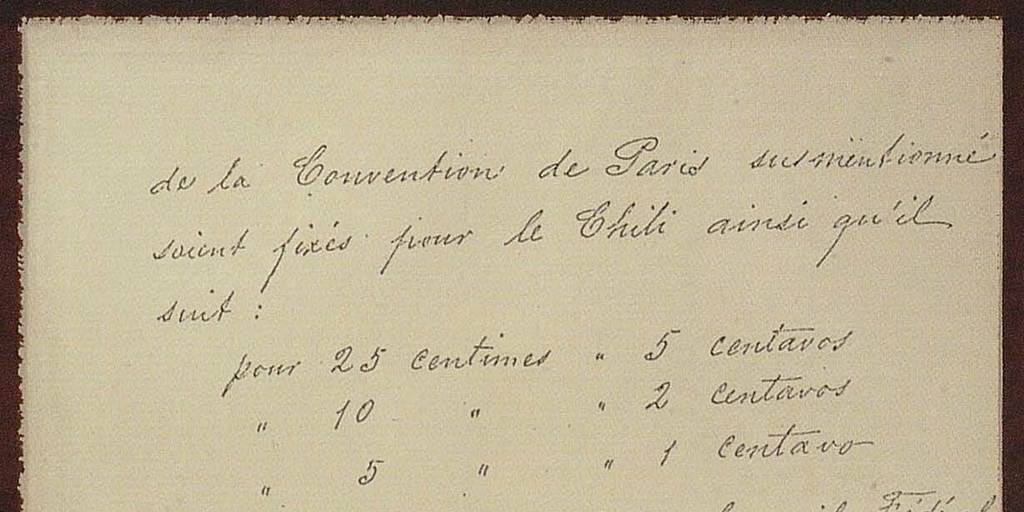 de la Convention de Paris susmentionné
soient fixés pour le Chili ainsi qu'il
suit :
pour 25 centimes " 5 centavos
" 10 " " 2 centavos
" 5 " " 1 centavo
Fédéral